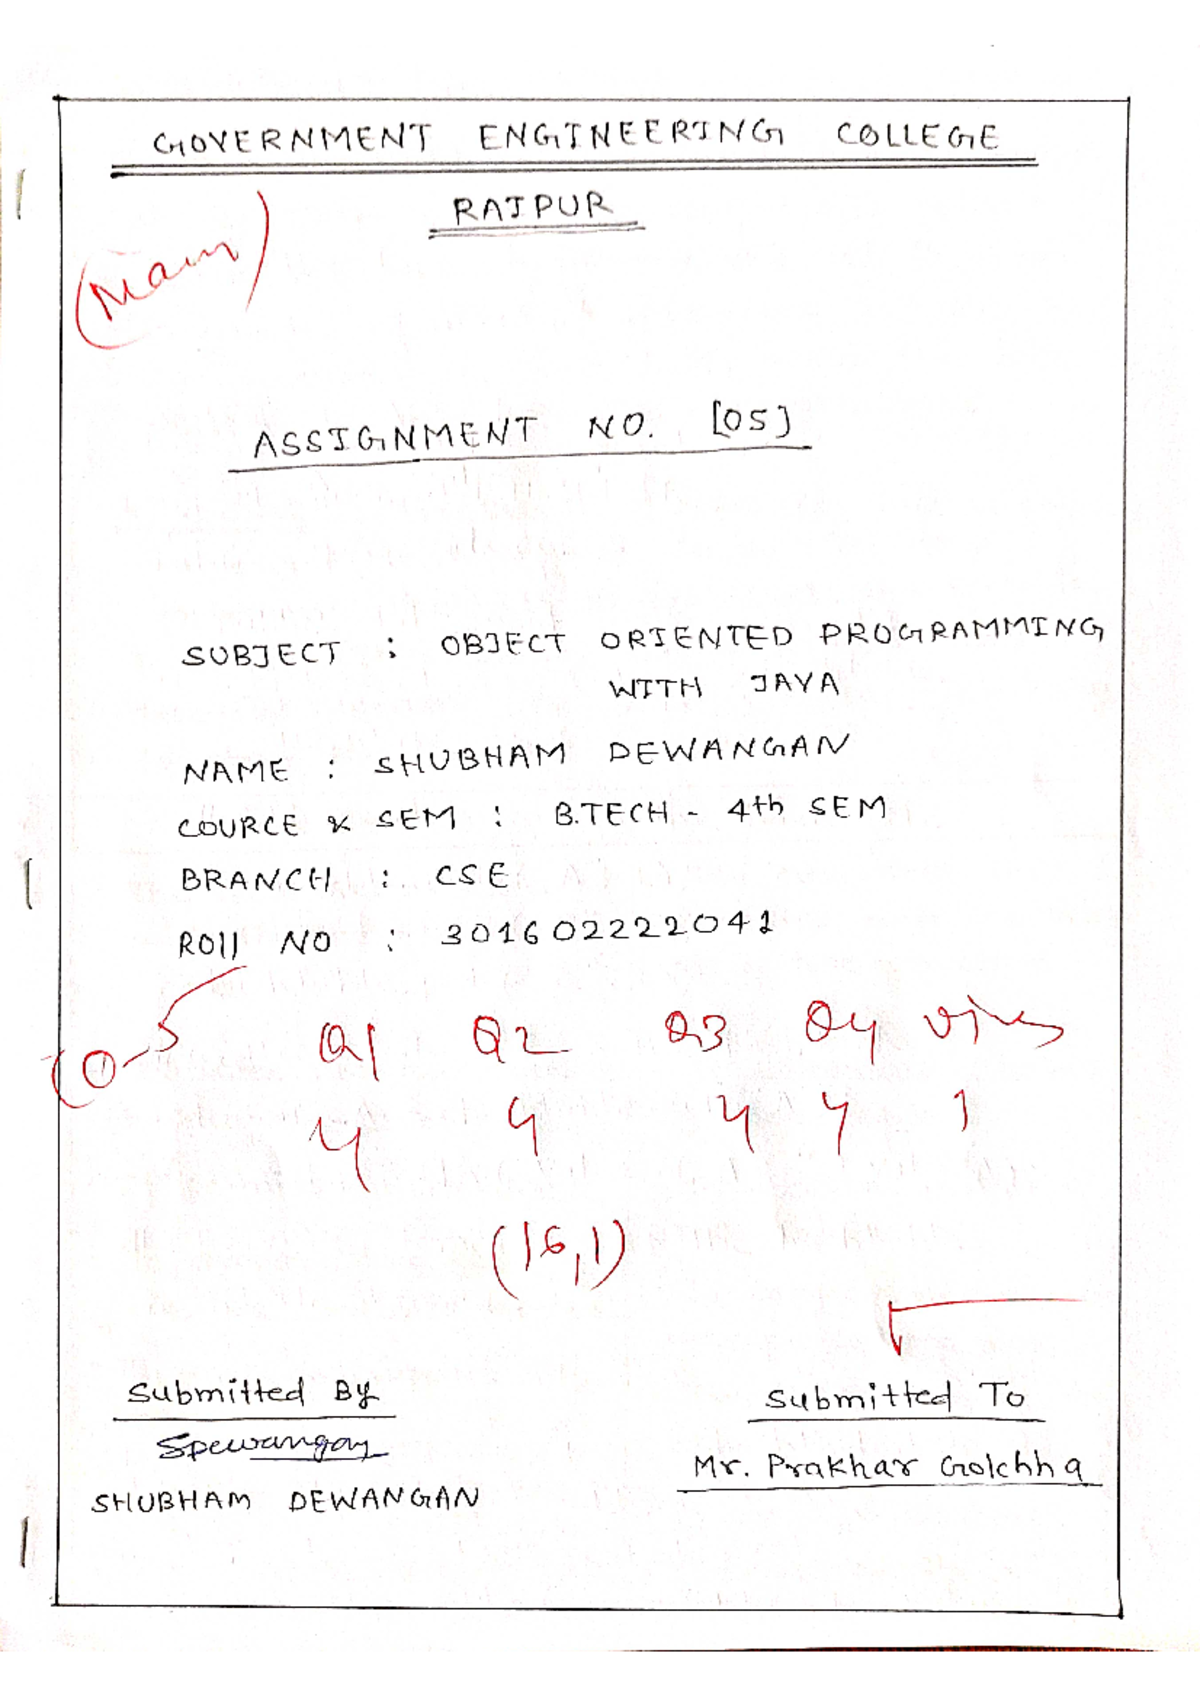 GOVERNMENT ENGINEERING COLLEGE
RAIPUR
(Main)
ASSIGNMENT NO. [05]
SUBJECT : OBJECT ORIENTED PROGRAMMING
WITH JAVA
NAME : SHUBHAM DEWANGAN
COURCE & SEM : B.TECH - 4th SEM
BRANCH : CSE
Roll NO : 301602222041
Q1 Q2 Q3 Q4 Viva
4 4 4 4 1
(16,1)
Submitted By
Submitted To
SDewangan
Mr. Prakhar Golchha
SHUBHAM DEWANGAN